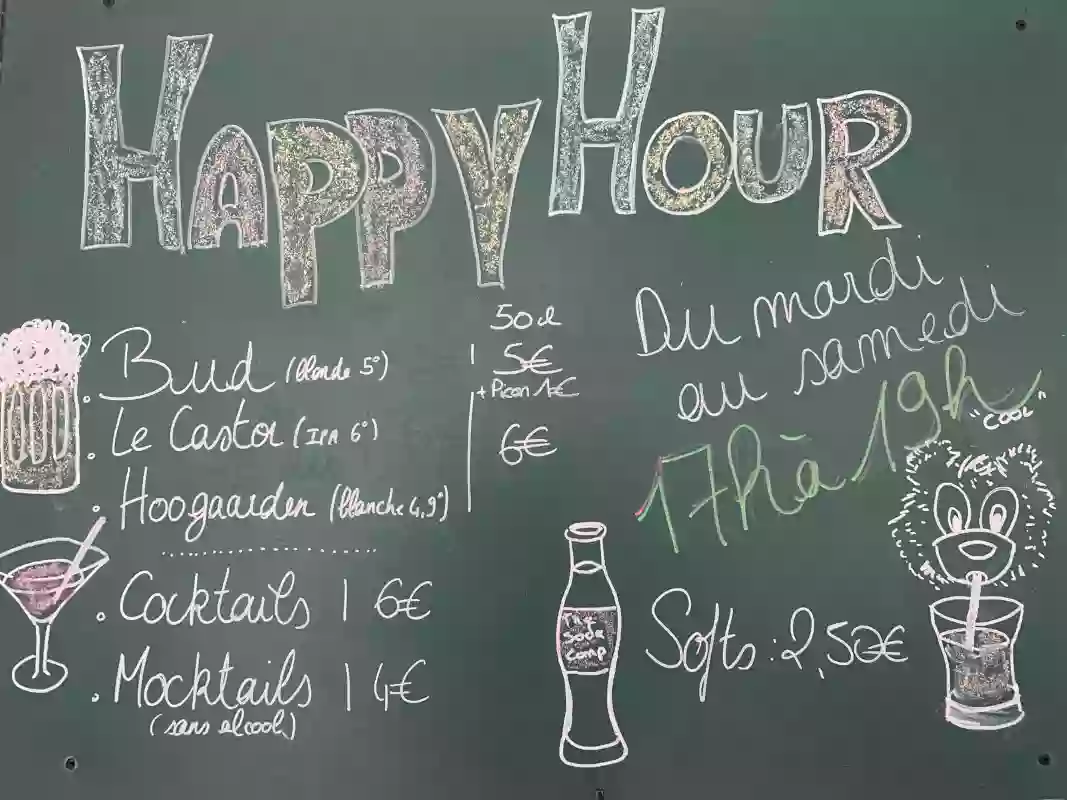 HAPPY HOUR
Du mardi
au samedi
17h à 19h
50cl
. Bud (blonde 5°) | 5€
+ Picon 1€
. Le Castor (IPA 6°)
6€
. Hoogaarden (blanche 4,9°)
. Cocktails | 6€
. Mocktails | 4€
(sans alcool)
"COOL"
The
Soda
Comp
Softs : 2,50€